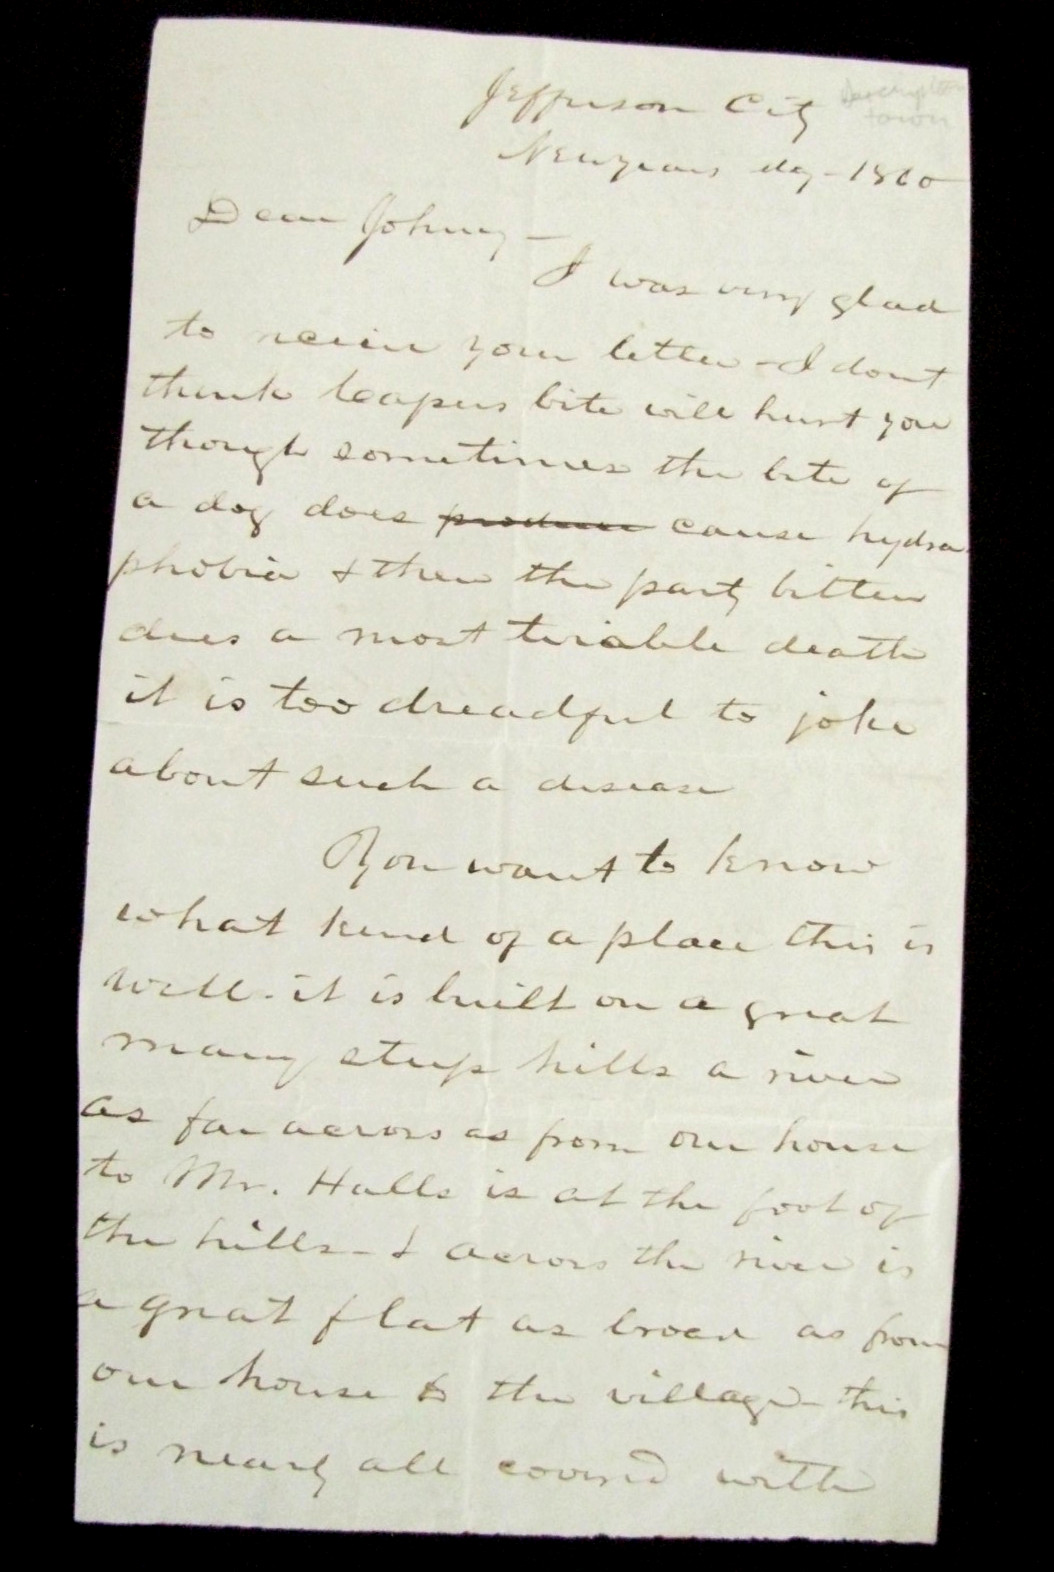 Jefferson City
Description
town
Newyears day - 1860
Dear Johnny -
I was very glad
to receive your letter - I dont
think leapers bite will hurt you
though sometimes the bite of
a dog does produce cause hydra
phobia & then the party bitten
dies a most terrable death
it is too dreadful to joke
about such a disease
You want to know
what kind of a place this is
well - it is built on a great
many steep hills a river
as far across as from our house
to Mr. Halls is at the foot of
the hills - & across the river is
a great flat as broad as from
our house to the village - this
is nearly all covered with